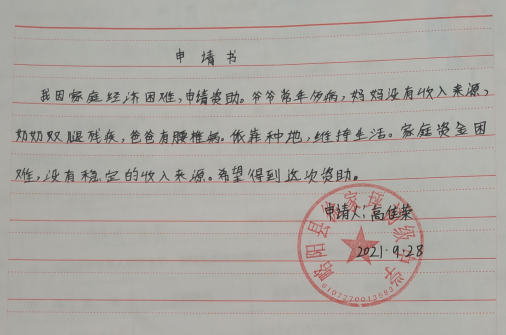 申请书
我因家庭经济困难,申请资助。爷爷常年伤病,妈妈没有收入来源,
奶奶双腿残疾,爸爸有腰椎病。依靠种地,维持生活。家庭资金困
难,没有稳定的收入来源。希望得到这次资助。
申请人:高佳荣
2021.9.28
略阳县
家坪
级中学